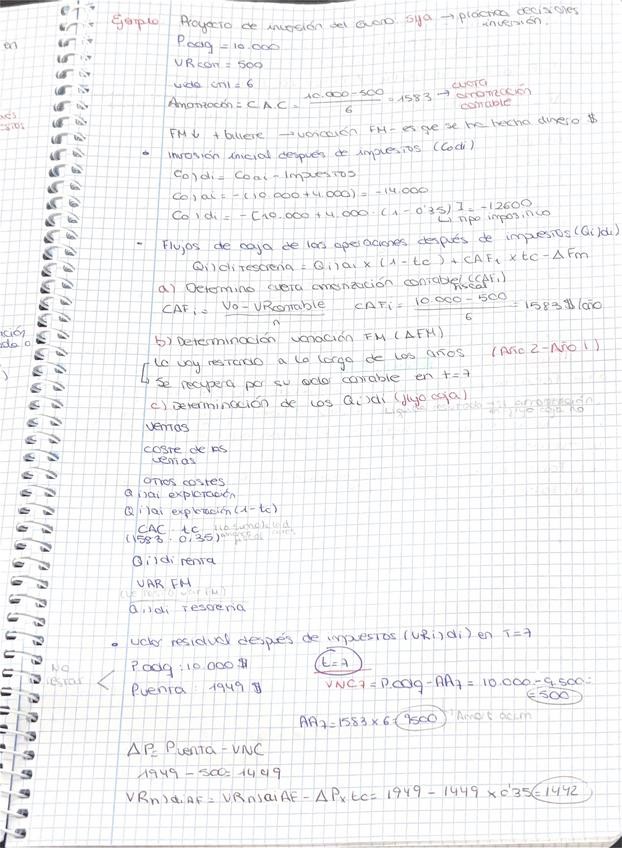 Ejemplo Proyecto de inversión del guano. Siya → práctica decisiones inversión.
Padq = 10.000
VRcon = 500
vida útil = 6
Amortización = CAC = 10.000 - 500 / 6 = 1583 → cuota amortización contable
FM↓ + billete → variación FM - es que se ha hecho dinero $
• Inversión inicial después de impuestos (Codi)
Co)di = Coai - Impuestos
Co)ai = - (10.000 + 4.000) = -14.000
Co)di = -[10.000 + 4.000 · (1 - 0'35)] = -12600
↳ tipo impositivo
- Flujos de caja de las operaciones después de impuestos (Qi)di)
Qi)di tesorería = Qi)ai x (1 - tc) + CAFi x tc - ΔFm
a) Determino cuota amortización contable/fiscal (CAFi)
CAFi = Vo - VRcontable / n CAFi = 10.000 - 500 / 6 = 1583 $/año
b) Determinación variación FM (ΔFM)
Lo voy restando a lo largo de los años (Año 2 - Año 1)
Se recupera por su valor contable en t=7
c) Determinación de los Qi)di (flujo caja)
ventas
coste de las ventas
otros costes
Qi)ai explotación
Qi)ai explotación (1-tc)
CAC · tc
(1583 · 0,35)
Qi)di renta
VAR FM
Qi)di tesorería
• Valor residual después de impuestos (VRi)di) en T=7
Padq: 10.000 $ t=7
No restar < Pventa: 1949 $ VNC7 = P.adq - AA7 = 10.000 - 9.500 = 500
AA7 = 1583 x 6 = 9500 Amort acum
ΔP = Pventa - VNC
1949 - 500 = 1449
VRn)diAF = VRn)aiAF - ΔP x tc = 1949 - 1449 x 0'35 = 1442